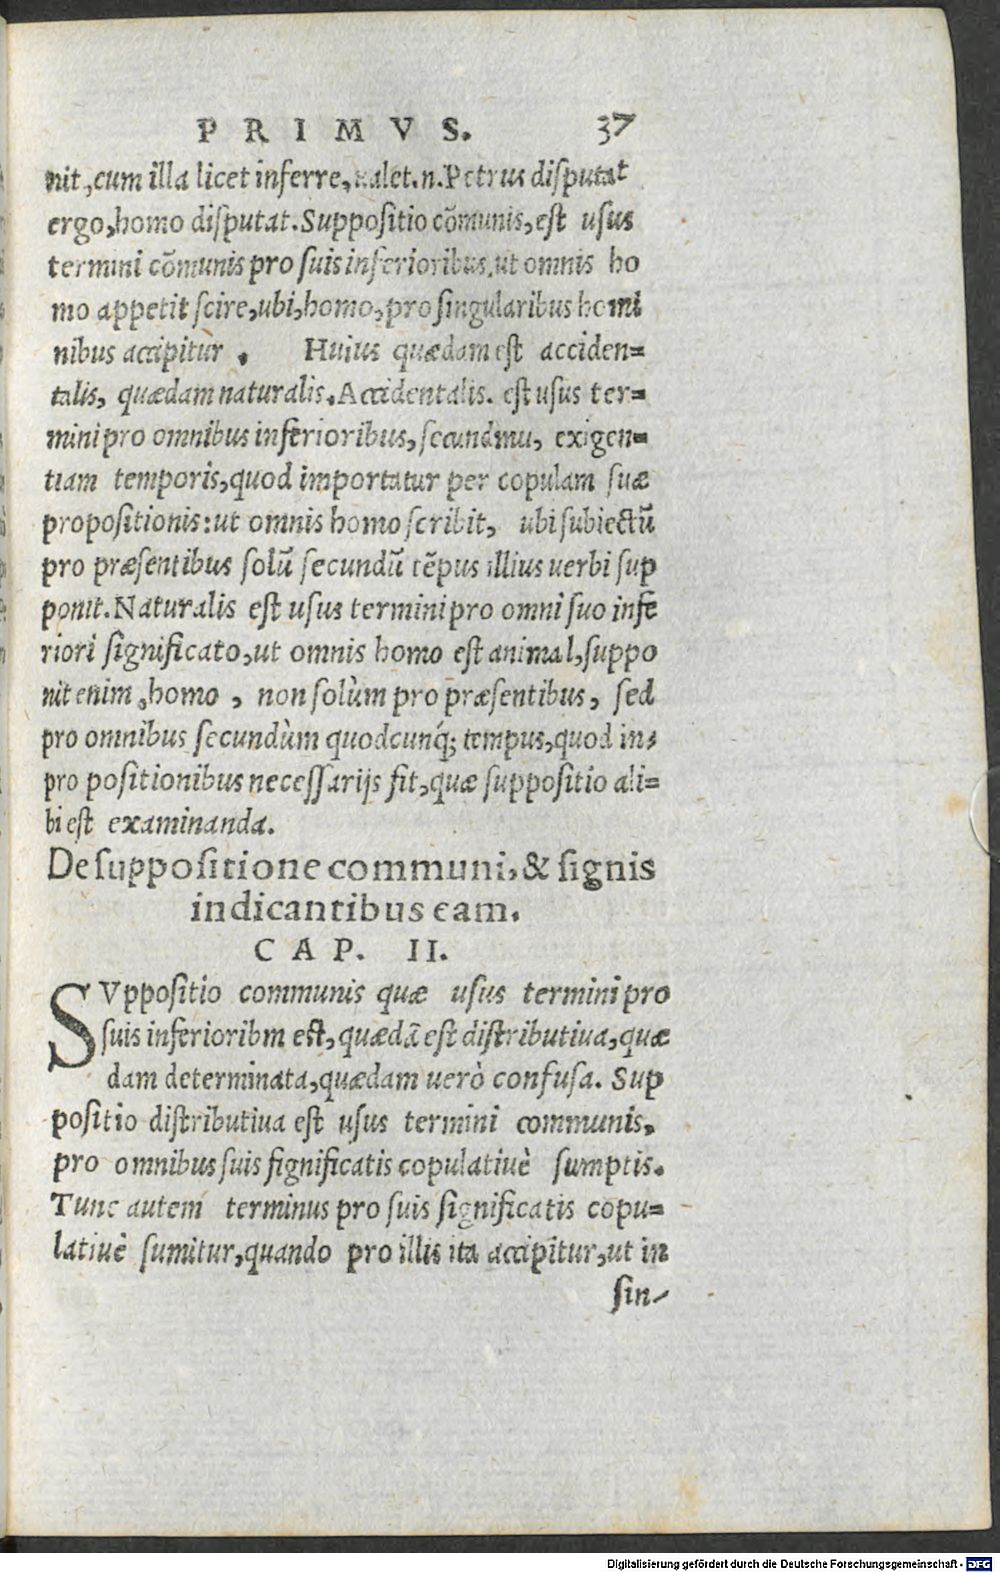 PRIMVS. 37
nit, cum illa licet inferre, ualet.n. Petrus disputat
ergo, homo disputat. Suppositio cõmunis, est usus
termini cõmunis pro suis inferioribus, ut omnis ho
mo appetit scire, ubi, homo, pro singularibus homi
nibus accipitur. Huius quædam est acciden=
talis, quædam naturalis. Accidentalis. est usus ter=
mini pro omnibus inferioribus, secundmu, exigen=
tiam temporis, quod importatur per copulam suæ
propositionis: ut omnis homo scribit, ubi subiectũ
pro præsentibus solũ secundũ tẽpus illius uerbi sup
ponit. Naturalis est usus termini pro omni suo infe
riori significato, ut omnis homo est animal, suppo
nit enim, homo, non solùm pro præsentibus, sed
pro omnibus secundùm quodcunq́; tempus, quod in
pro positionibus necessarijs fit, quæ suppositio ali=
bi est examinanda.
De suppositione communi, & signis
indicantibus eam.
CAP. II.
SVppositio communis quæ usus termini pro
suis inferioribm est, quædã est distributiua, quæ
dam determinata, quædam uerò confusa. Sup
positio distributiua est usus termini communis,
pro omnibus suis significatis copulatiuè sumptis.
Tunc autem terminus pro suis significatis copu=
latiuè sumitur, quando pro illis ita accipitur, ut in
sin-
Digitalisierung gefördert durch die Deutsche Forschungsgemeinschaft - DFG